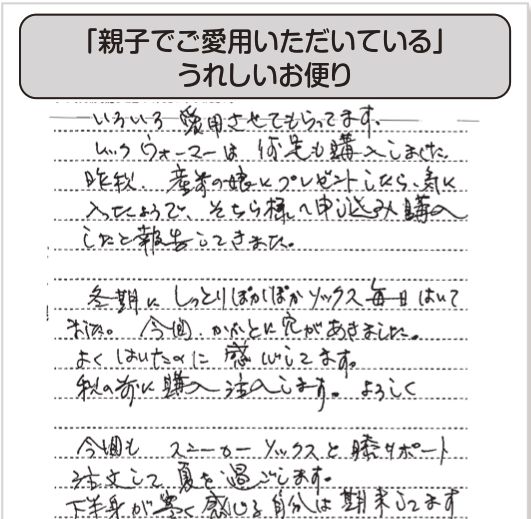 「親子でご愛用いただいている」
うれしいお便り
いろいろ愛用させてもらってます。
レッグウォーマーは何足も購入しました。
昨秋、産米の娘にプレゼントしたら、気に
入ったようで、そちら様へ申込み購入
したと報告してきました。
冬期にしっとりぽかぽかソックス毎日はいて
ました。今回、かかとに穴があきました。
よくはいたのに感心してます。
秋の前に購入注入します。よろしく
今回もスニーカーソックスと膝サポート
注文して夏を過ごします。
下半身が寒く感じる自分は期末してます